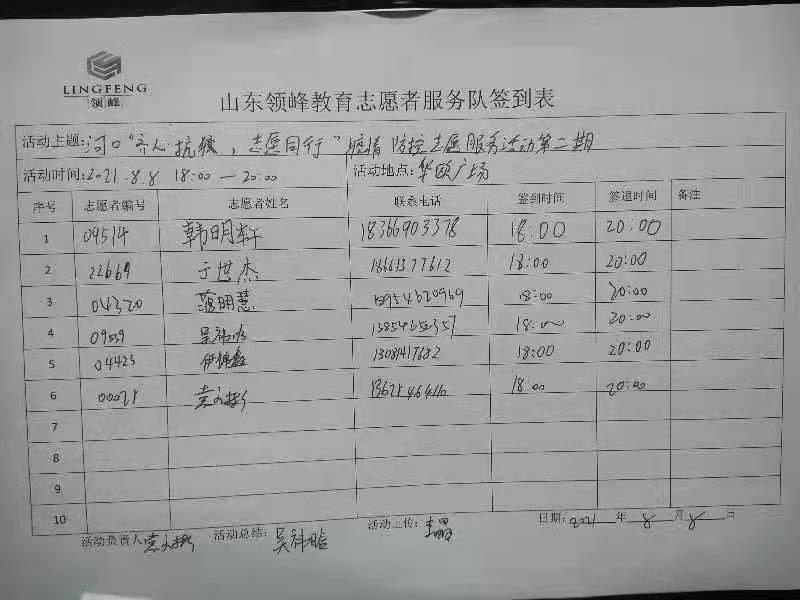 LINGFENG
领峰
山东领峰教育志愿者服务队签到表
活动主题:河口“齐心抗疫,志愿同行”疫情防控志愿服务活动第二期
活动时间:2021.8.8 18:00—20:00 活动地点:华欧广场
序号 志愿者编号 志愿者姓名 联系电话 签到时间 签退时间 备注
1 09514 韩明轩 18366903378 18:00 20:00
2 22669 于世杰 18661377612 18:00 20:00
3 04320 明慧 18:00 20:00
4 09559 18:00 20:00
5 04423 13081417682 18:00 20:00
6 00025 18:00 20:00
7
8
9
10
活动负责人 活动总结: 活动上传: 日期:2021年8月8日